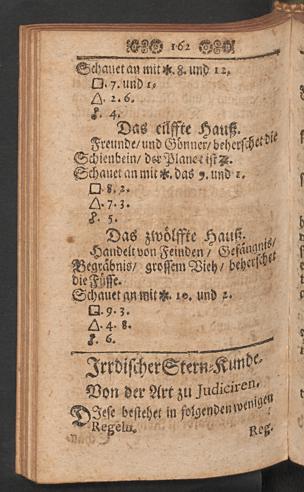 162
Schauet an mit ⚹. 8. und 12.
□. 7. und 1.
△. 2. 6.
☍. 4.
Das eilffte Hauß.
Freunde/ und Gönner/ beherschet die
Schienbein/ der Planet ist ♃.
Schauet an mit ⚹. das 9. und 1.
□. 8. 2.
△. 7. 3.
☍. 5.
Das zwölffte Hauß.
Handelt von Feinden / Gefängnis/
Begräbnis/ grossem Vieh/ beherschet
die Füsse.
Schauet an mit ⚹. 10. und 2.
□. 9. 3.
△. 4. 8.
☍. 6.
Irrdischer Stern-Kunde.
Von der Art zu Judiciren.
DJese bestehet in folgenden wenigen
Regeln.
Reg.